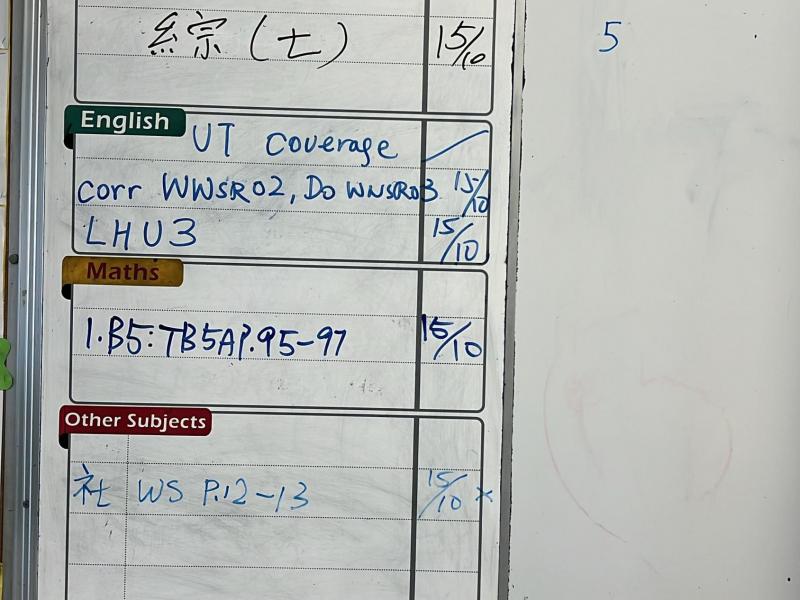 綜(七) 15/10
5
English
UT Coverage
corr WWSR02, Do WWSR03 15/10
LHU3 15/10
Maths
1.B5:TB5AP.95-97 15/10
Other Subjects
社 WS P.12-13 15/10 ×